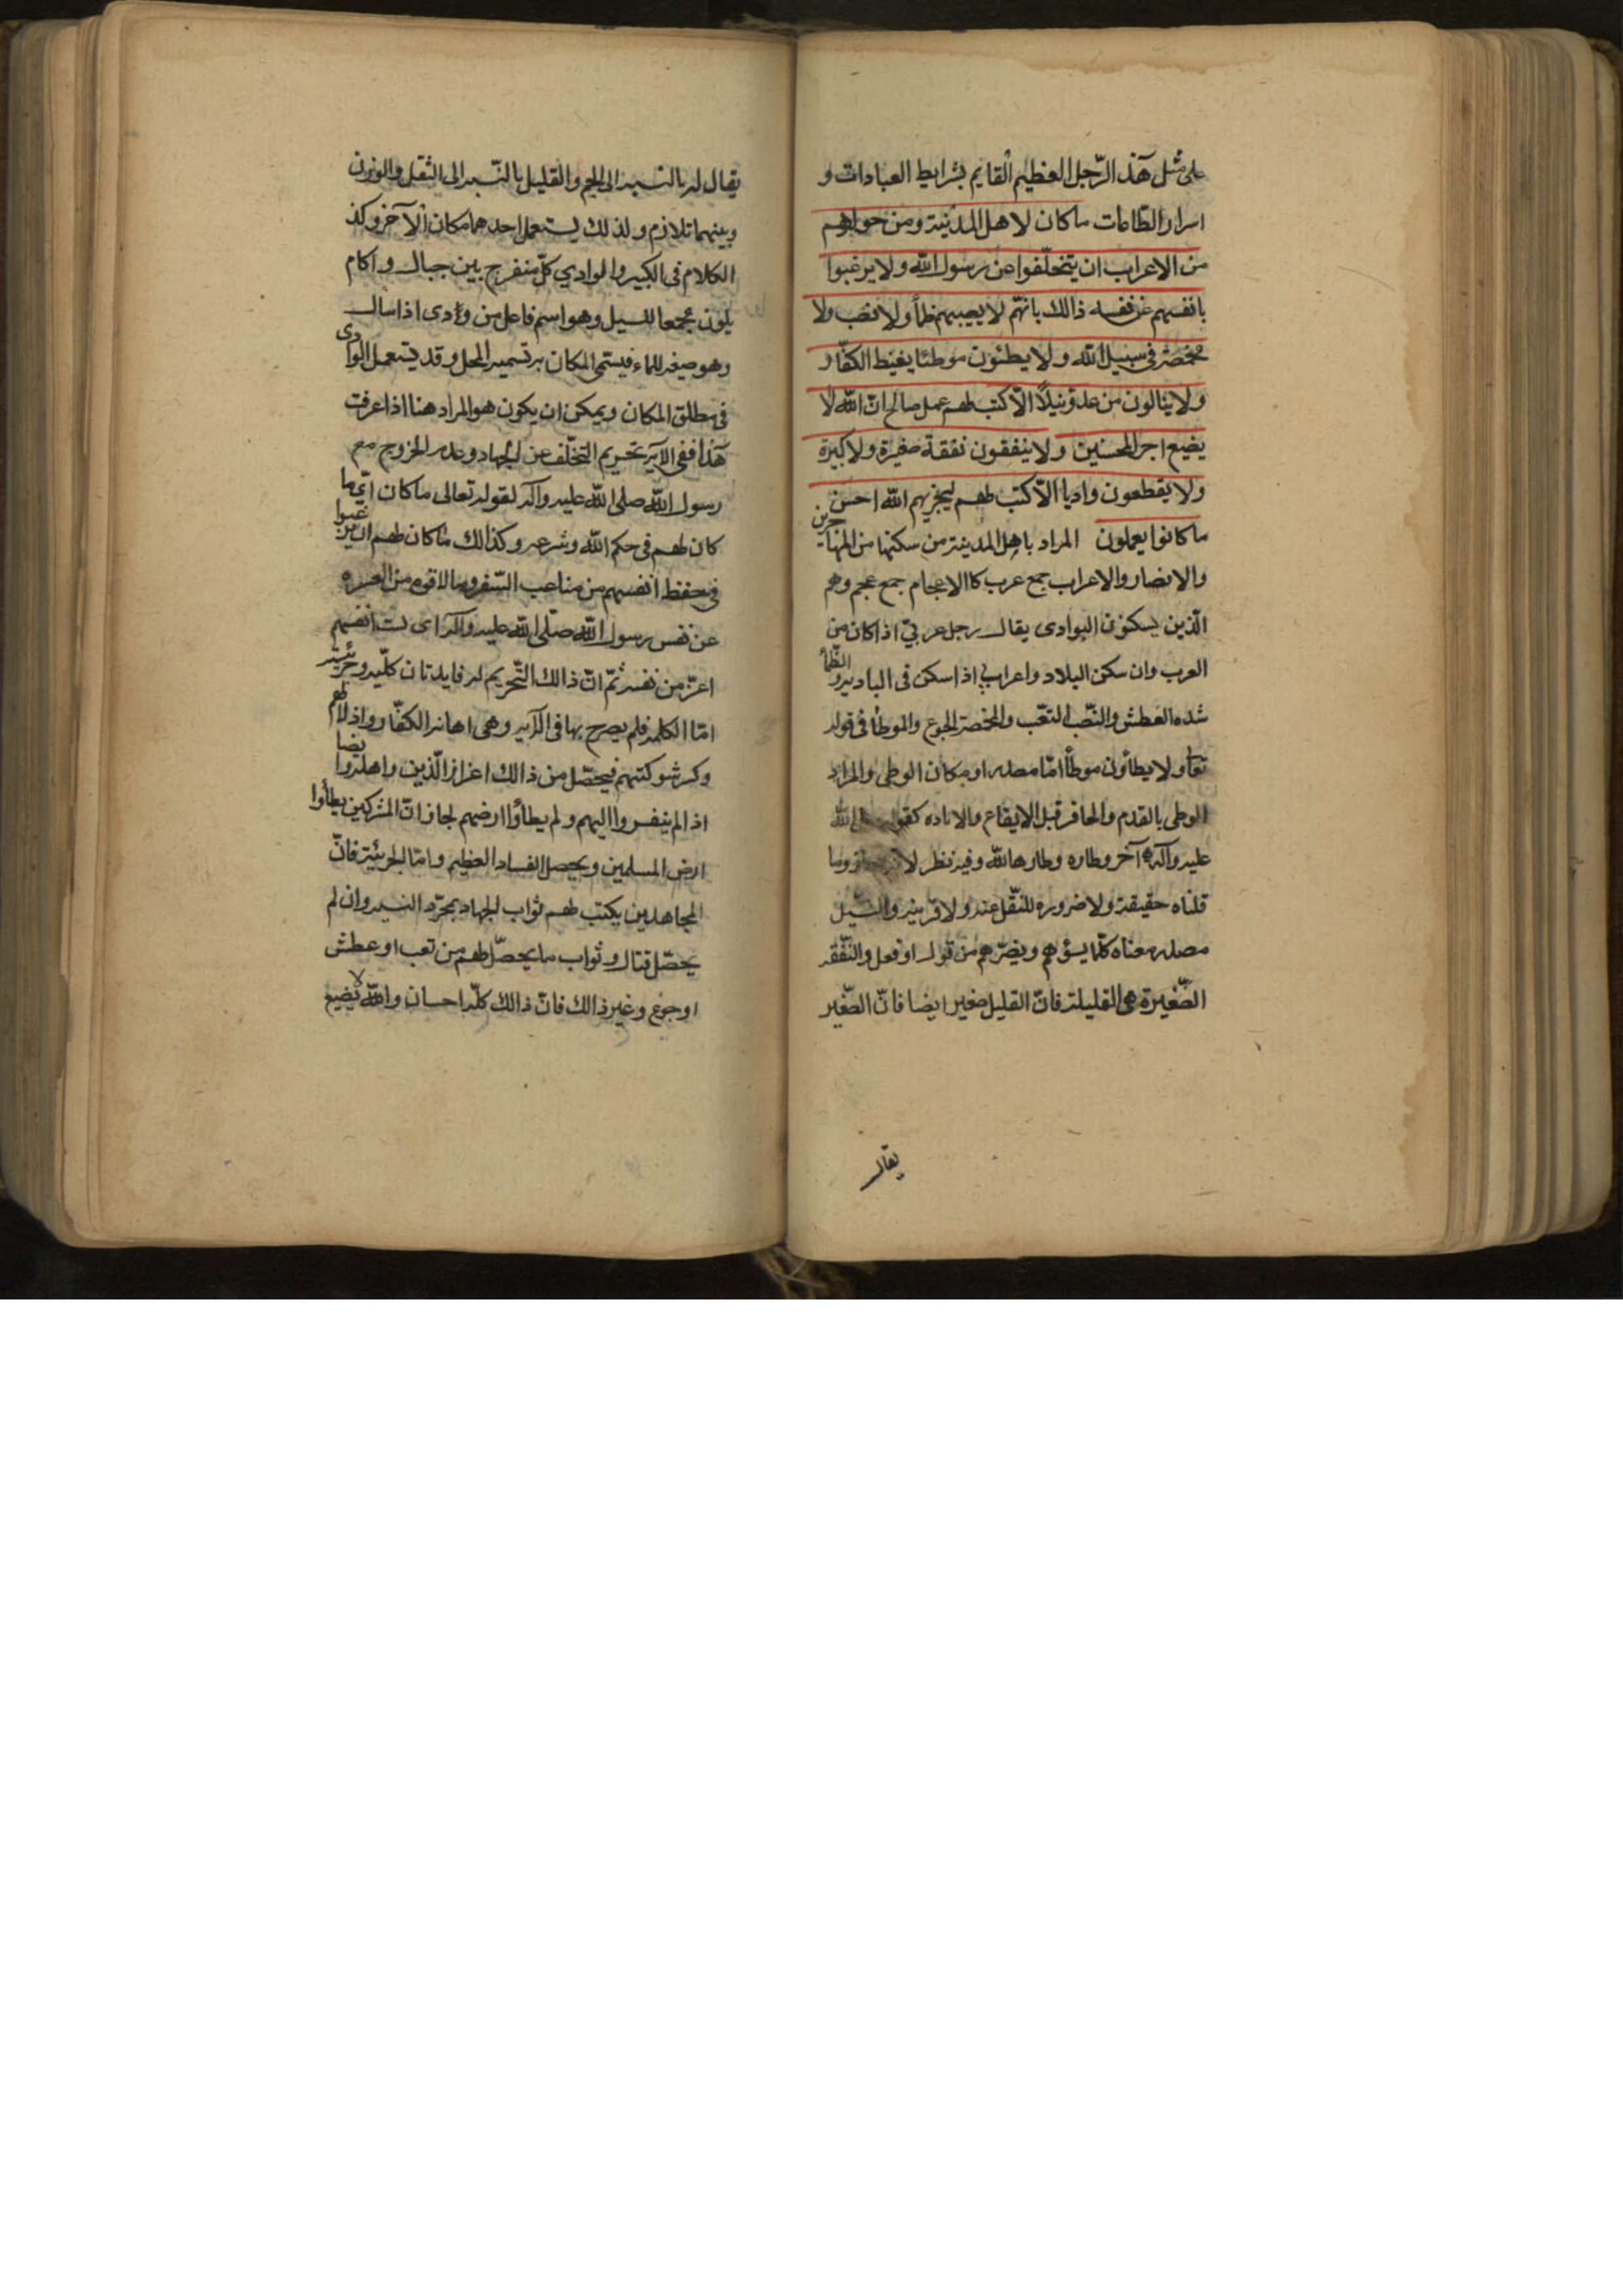 على مثل هذ الرّجل العظيم القايم بشرايط العبادات و
اسرار الطّاعات ماكان لاهل المدنية ومن حولهم
من الاعراب ان يتخلّفوا عن رسول الله ولا يرغبوا
بانفسهم عن نفسه ذالك بانّهم لا يصيبهم ظمأ ولا نصب ولا
مخمصة فى سبيل الله ولا يطئون موطئا يغيظ الكفّار
ولا ينالون من عدوّ نيلاً الاّ كتب لهم عمل صالح انّ الله لا
يضيع اجر المحسنين ولا ينفقون نفقة صغيرة ولا كبيرة
ولا يقطعون واديا الاّ كتب لهم ليجزيهم الله احسن
ما كانوا يعملون المراد باهل المدينة من سكنها من المهاجرين
والانصار والاعراب جمع عرب كاالاعجام جمع عجم وهم
الّذين يسكنون البوادى يقال رجل عربيّ اذا كان من
العرب وان سكن البلاد واعرابي اذا سكن فى الباديه والظّمأ
شده العطش والنّصب التعّب والمخمصة الجوع والموطأ فى قوله
تعا ولا يطأون موطأ امّا مصدر او مكان الوطى والمراد
الوطى بالقدم والحافر قبل الايقاع والاباده كقوله صلى الله
عليه وآله آخر وطاره وطارها لله وفيه نظر لانه وما
قلناه حقيقة ولا ضروره للنّقل عنه ولا قرينه والنّيل
مصدر معناه كلّما يسؤهم ويضرّهم من قول او فعل والنّفقه
الصّغيرة هى القليلة فانّ القليل صغير ايضا فانّ الصّغير
يقال
يقال له بالنسبه الى الحجم والقليل بالنّسبه الى الثقل والوزن
وبينهما تلازم ولذلك يستعمل احدهما مكان الآخر وكذ
الكلام فى الكبير والوادي كلّ منفرج بين جبال واكام
يكون مجمعا للسيل وهو اسم فاعل من ودى اذا سال
وهو صيغه للماء فيسمّى المكان به تسميه المحل وقد يستعمل الوادى
فى مطلق المكان ويمكن ان يكون هو المراد هنا اذا عرفت
هذا ففى الآيه تحريم التخلّف عن الجهاد وعدم الخروج مع
رسول الله صلى الله عليه وآله لقوله تعالى ماكان اي ما
كان لهم فى حكم الله وشرعه وكذالك ماكان لهم ان يرغبوا
فى حفظ انفسهم من متاعب السّفر وما لاقوه من العسره
عن نفس رسول الله صلّى الله عليه وآله اى ليست انفسهم
اعزّ من نفسه ثمّ انّ ذالك التّحريم له فايدتان كلّيه وجزئيّة
امّا الكليه فلم يصرح بها فى الآيه وهى اهانه الكفّار واذلالهم
وكسر شوكتهم فيحصّل من ذالك اعزاز الّذين واهله وايضا
اذا لم ينفروا اليهم ولم يطأوا ارضهم لجاز انّ المشركين يطأوا
ارض المسلمين ويحصل الفساد العظيم وامّا الجزئية فانّ
المجاهدين يكتب لهم ثواب الجهاد بمجرّد السير وان لم
يحصّل قتال وثواب ما يحصّل لهم من تعب او عطش
او جوع وغير ذالك فانّ ذالك كلّه احسان والله لا يضيع